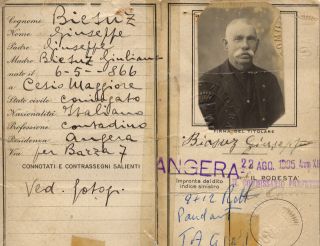 Cognome Biesuz
Nome Giuseppe
Padre Giuseppe
Madre Biesuz Giuliana
nato il 6-5-866
a Cesio Maggiore
Stato civile coniugato
Nazionalità Italiana
Professione Contadino
Residenza Angera
Via per Barza 7
CONNOTATI E CONTRASSEGNI SALIENTI
Ved. fotogr.
FIRMA DEL TITOLARE
Biesuz Giuseppe
ANGERA
22 AGO. 1935 Anno XIII
Impronta del dito
indice sinistro
IL PODESTÀ